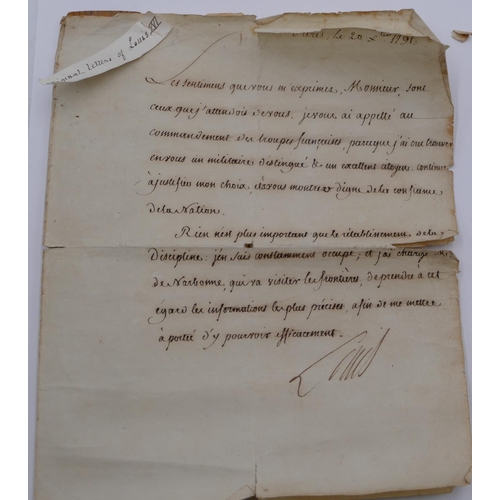 original Letters of Louis XVI
Paris, le 20 Xbre 1791.
Les sentimens que vous m'exprimés, Monsieur, sont
ceux que j'attendois de vous. je vous ai appellé au
commandement des troupes françaises, parceque j'ai cru trouver
en vous un militaire distingué & un excellent citoyen. continuez
à justifier mon choix, & à vous montrer digne de la confiance
de la Nation.
Rien n'est plus important que le rétablissement de la
Discipline: j'en suis constamment occupé, et j'ai chargé M.
de Narbonne, qui va visiter les frontières, de prendre à cet
égard les informations les plus précises, afin de me mettre
à portée d'y pourvoir efficacement.
Louis